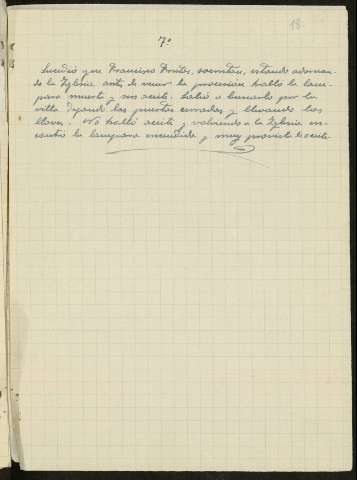 18
7º
Sucedió que Francisco Frutos, sacristan, estando adornan-
do la Iglesia antes de venir la procesion halló la lam-
para muerta y sin aceite. Salió a buscarlo por la
villa dejando las puertas cerradas y llevando las
llaves. No halló aceite y volviendo a la Iglesia en-
contró la lampara encendida y muy provista de aceite